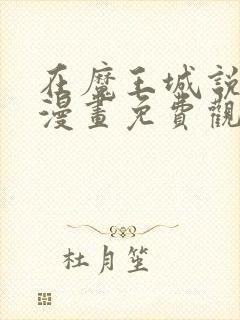 在魔王城說
漫畫免費觀
杜月笙